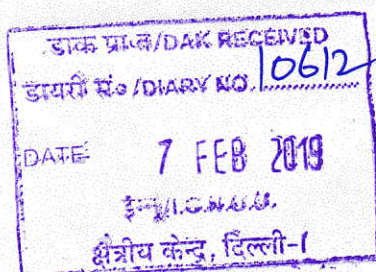 डाक प्राप्त/DAK RECEIVED
डायरी सं०/DIARY NO. 10612
DATE 7 FEB 2019
इग्नू/I.G.N.O.U.
क्षेत्रीय केन्द्र, दिल्ली-1